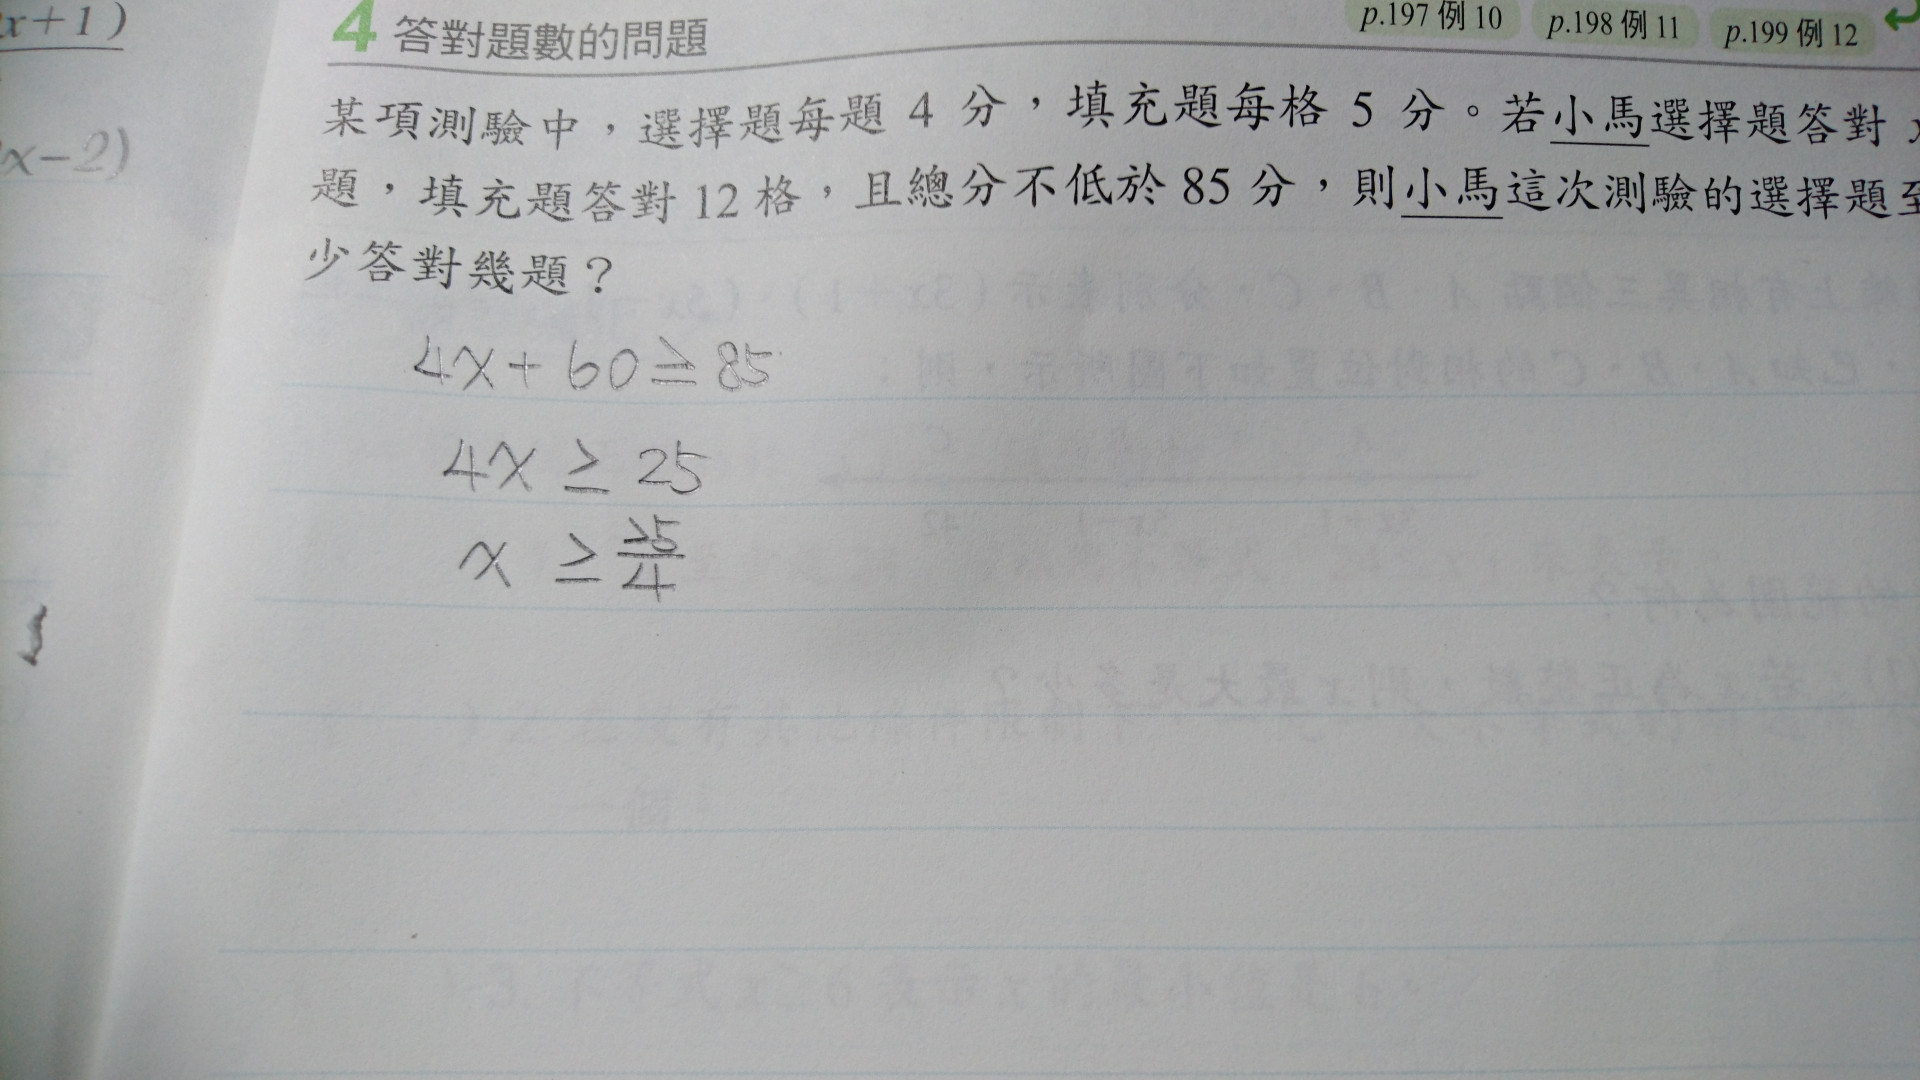 x+1)
x-2)
4 答對題數的問題
p.197 例 10 p.198 例 11 p.199 例 12
某項測驗中，選擇題每題 4 分，填充題每格 5 分。若小馬選擇題答對 x
題，填充題答對 12 格，且總分不低於 85 分，則小馬這次測驗的選擇題至
少答對幾題？
4x+60≥85
4x ≥ 25
x ≥ 25/4